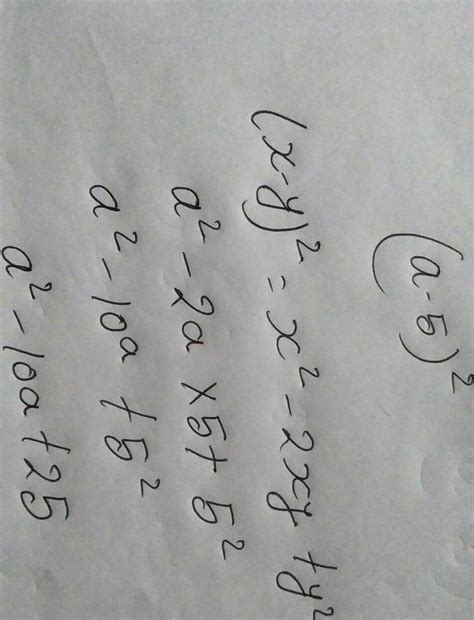 (a-5)²
(x-y)² = x² - 2xy + y²
a² - 2a × 5 + 5²
a² - 10a + 5²
a² - 10a + 25